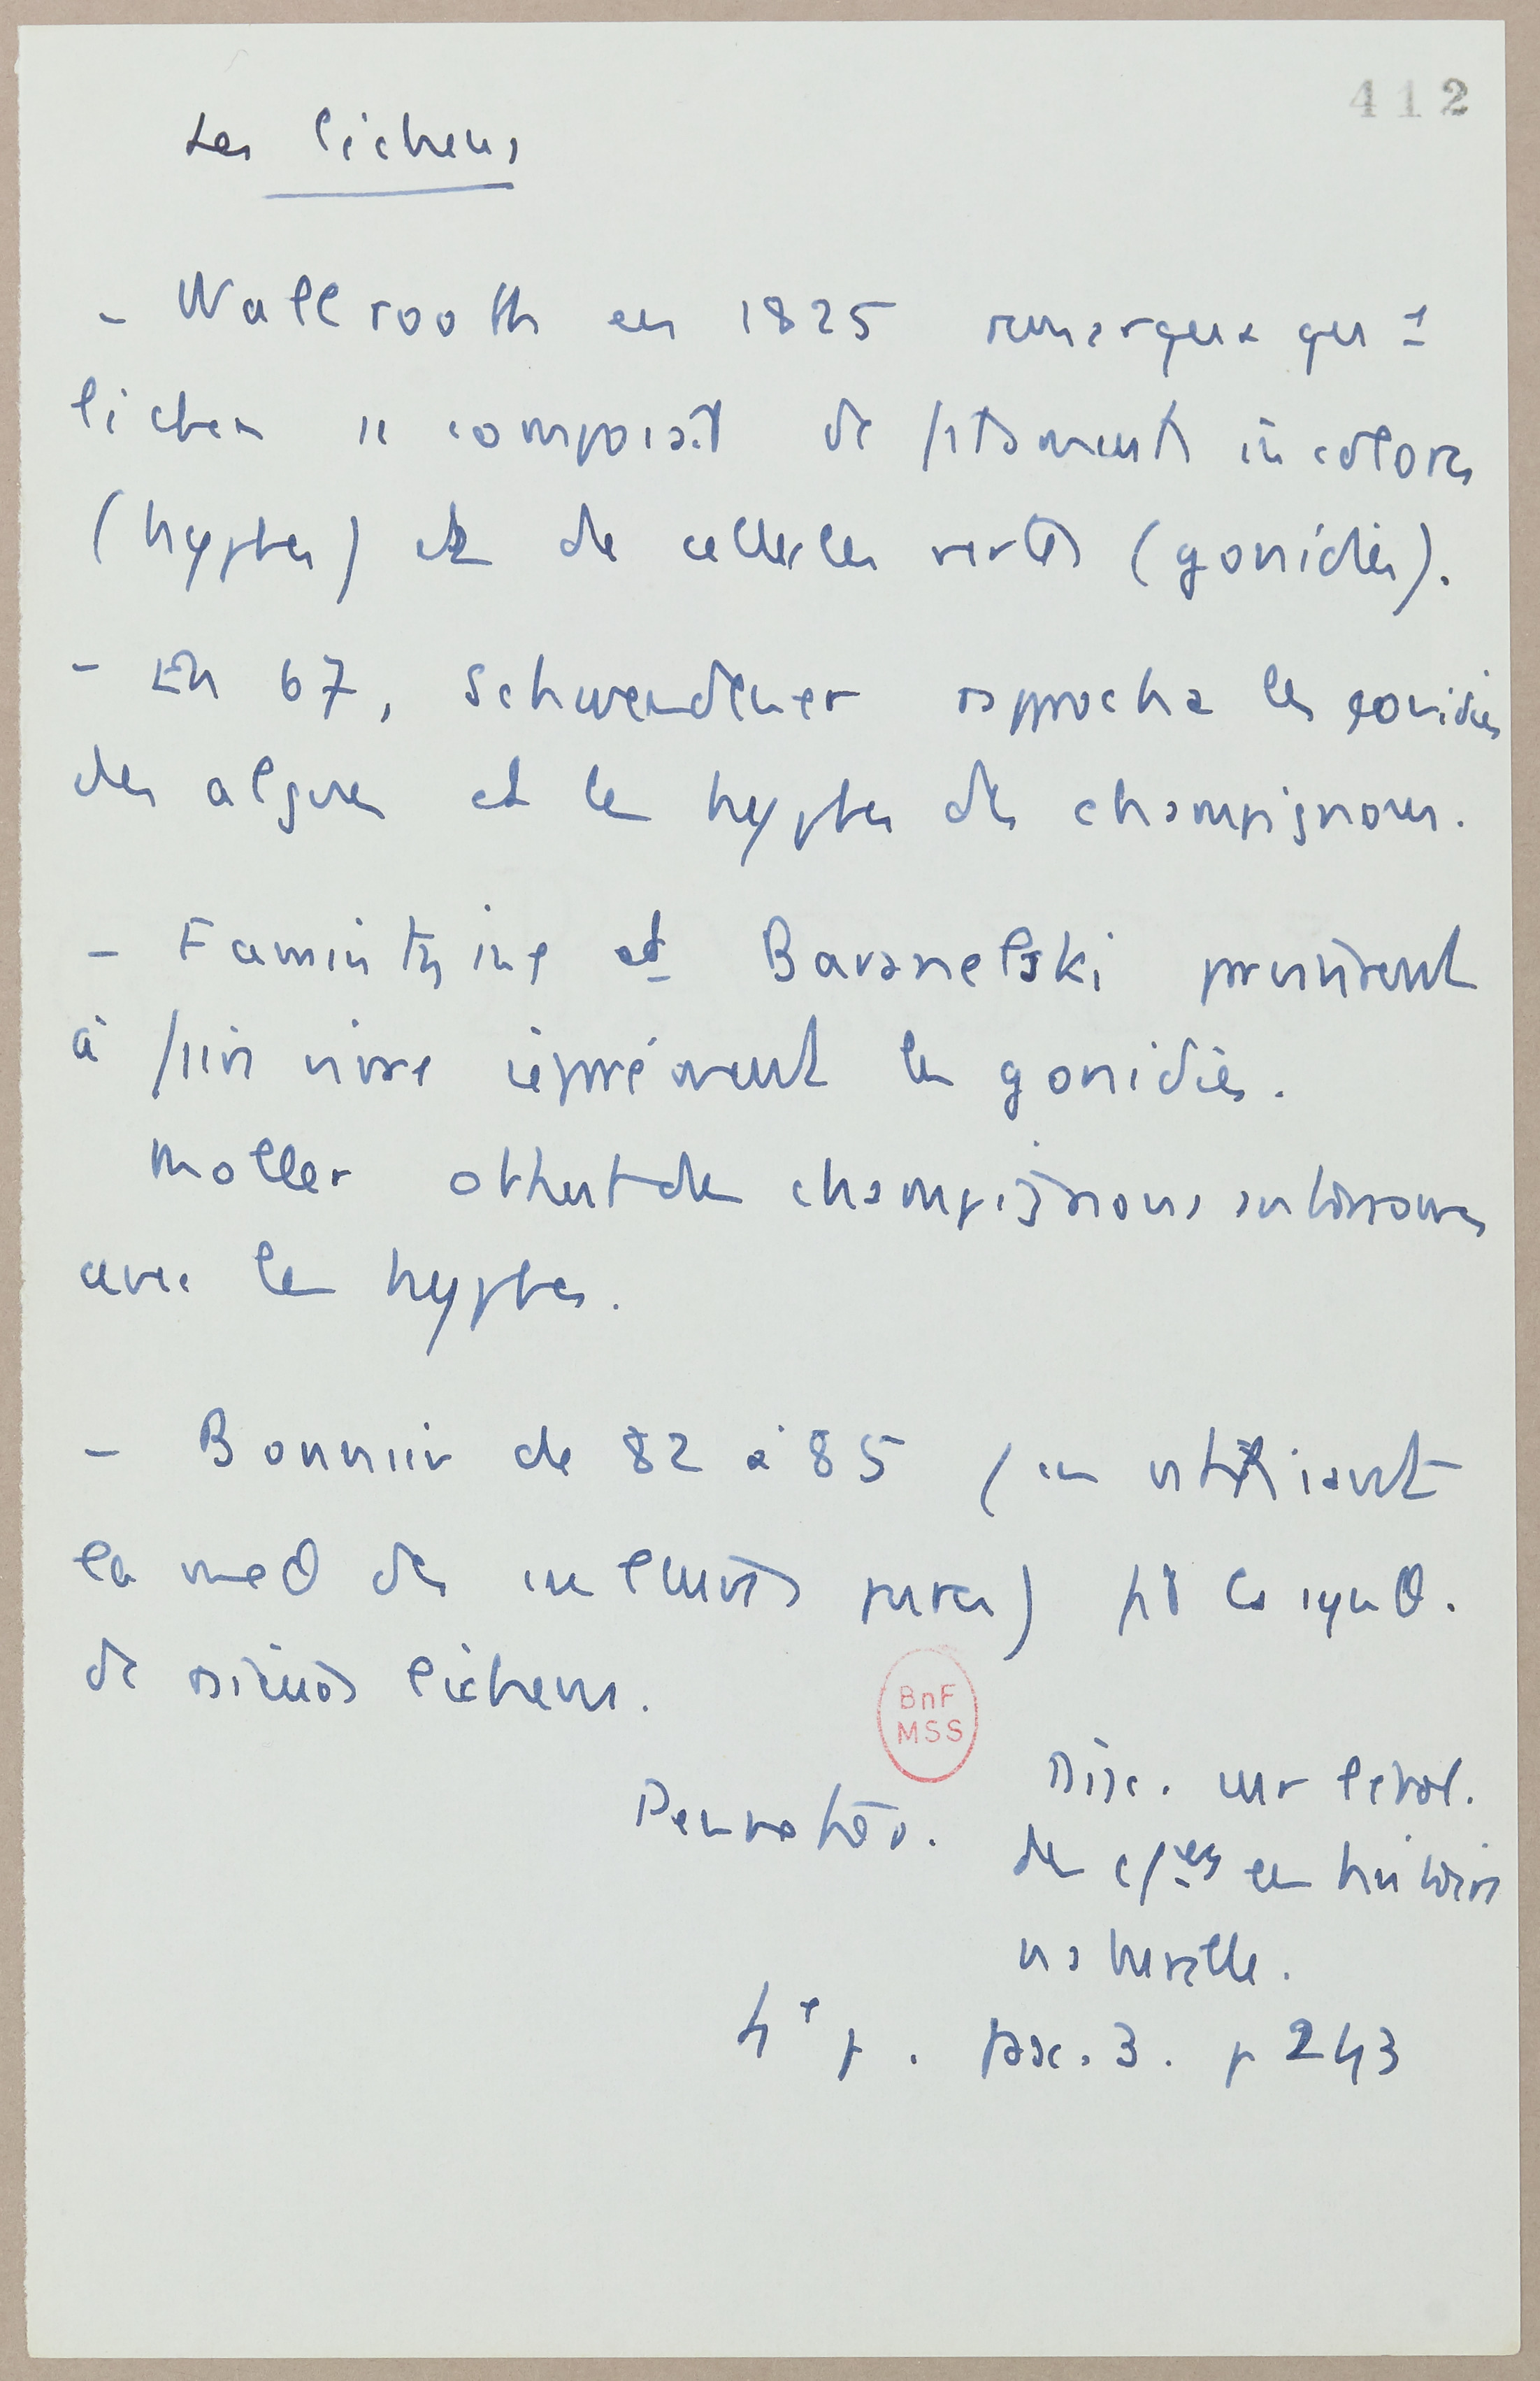 412
Les lichens
- Wallrooth en 1825 remarqua que 1
lichen se composait de filaments incolores
(hyphes) et de cellules vertes (gonidies).
- En 67, Schwendener rapprocha les gonidies
des algues et les hyphes des champignons.
- Famintzine et Baranelski parvinrent
à faire vivre séparément les gonidies.
Moller obtient des champignons autonomes
avec les hyphes.
- Bonnier de 82 à 85 (en utilisant
la meθ des cultures pures) fit la synθ.
de lichens.
BnF
MSS
Disc. sur l'évol.
des en histoire
naturelle.
4e p. fasc. 3. p 243